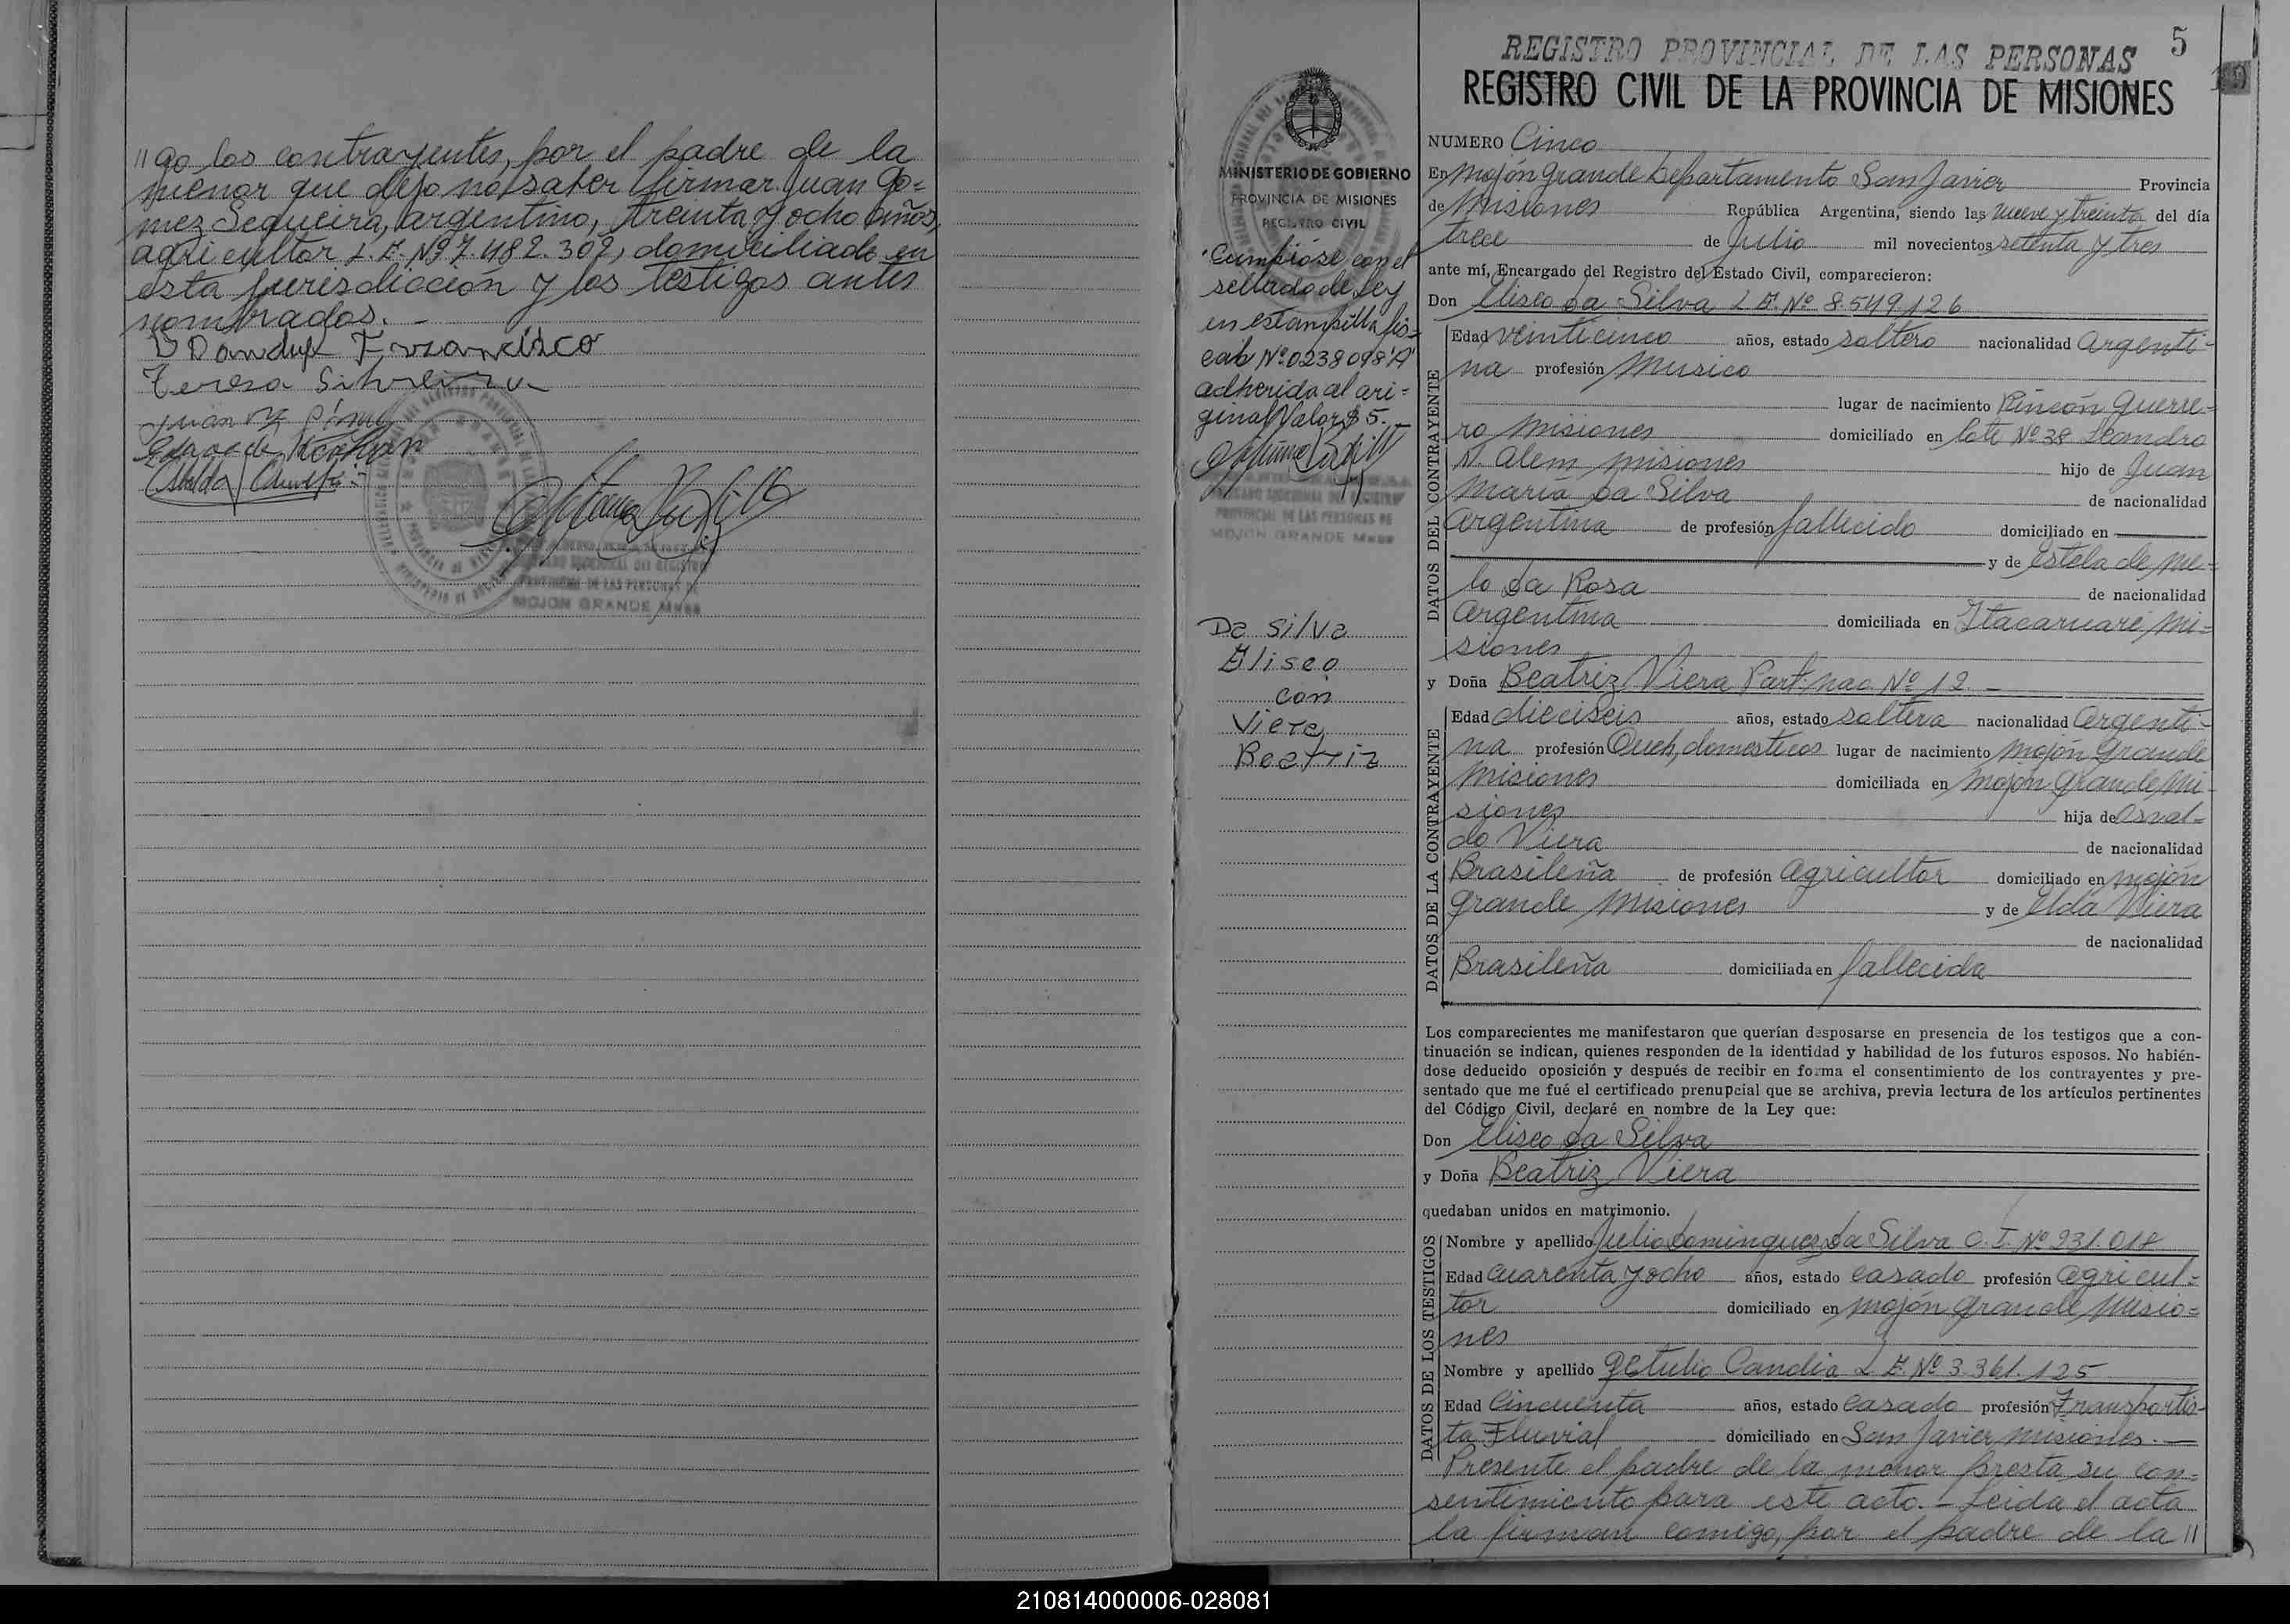 "go los contrayentes, por el padre de la
menor que dijo no saber firmar Juan Go=
mez Sequeira, argentino, treinta y ocho años,
agricultor L.E. Nº 7.482.302, domiciliado en
esta jurisdicción y los testigos antes
nombrados. -
Francisco
Teresa Silveira
MOJON GRANDE Mnes
REGISTRO PROVINCIAL DE LAS PERSONAS
5
REGISTRO CIVIL DE LA PROVINCIA DE MISIONES
MINISTERIO DE GOBIERNO
PROVINCIA DE MISIONES
REGISTRO CIVIL
Cumplióse con el
sellado de Ley
en estampilla fis=
cal Nº 0238098 "A"
adherida al ori=
ginal Valor $ 5.-
PROVINCIAL DE LAS PERSONAS DE
MOJON GRANDE Mnes
Da Silva
Eliseo
con
Viera
Beatriz
NUMERO Cinco
En Mojón Grande Departamento San Javier Provincia
de Misiones República Argentina, siendo las nueve y treinta del día
trece de Julio mil novecientos setenta y tres
ante mí, Encargado del Registro del Estado Civil, comparecieron:
Don Eliseo Da Silva L.E. Nº 8.549.126
DATOS DEL CONTRAYENTE
Edad veinticinco años, estado soltero nacionalidad Argenti-
na profesión Musico
lugar de nacimiento Rincón Guerre-
ro Misiones domiciliado en lote Nº 38 Leandro
N. Alem Misiones hijo de Juan
Maria Da Silva de nacionalidad
Argentina de profesión fallecido domiciliado en
y de Estela de Me=
lo Da Rosa de nacionalidad
Argentina domiciliada en Itacaruaré Mi=
siones
y Doña Beatriz Viera Part. nac. Nº 12. -
DATOS DE LA CONTRAYENTE
Edad dieciseis años, estado soltera nacionalidad Argenti-
na profesión Queh. domesticos lugar de nacimiento Mojón Grande
Misiones domiciliada en Mojón Grande Mi-
siones hija de Osval=
do Viera de nacionalidad
Brasileña de profesión Agricultor domiciliado en Mojón
Grande Misiones y de Elda Viera
de nacionalidad
Brasileña domiciliada en fallecida
Los comparecientes me manifestaron que querían desposarse en presencia de los testigos que a con-
tinuación se indican, quienes responden de la identidad y habilidad de los futuros esposos. No habién-
dose deducido oposición y después de recibir en forma el consentimiento de los contrayentes y pre-
sentado que me fué el certificado prenupcial que se archiva, previa lectura de los artículos pertinentes
del Código Civil, declaré en nombre de la Ley que:
Don Eliseo Da Silva
y Doña Beatriz Viera
quedaban unidos en matrimonio.
DATOS DE LOS TESTIGOS
Nombre y apellido Julio Dominguez Da Silva C.I. Nº 231.018
Edad cuarenta y ocho años, estado casado profesión Agricul-
tor domiciliado en Mojón Grande Misio=
nes
Nombre y apellido Getulio Candia L.E. Nº 3.361.125
Edad Cincuenta años, estado casado profesión Transportis-
ta Fluvial domiciliado en San Javier Misiones. -
Presente el padre de la menor presta su con=
sentimiento para este acto. - Leida el acta
la firman comigo, por el padre de la "
210814000006-028081